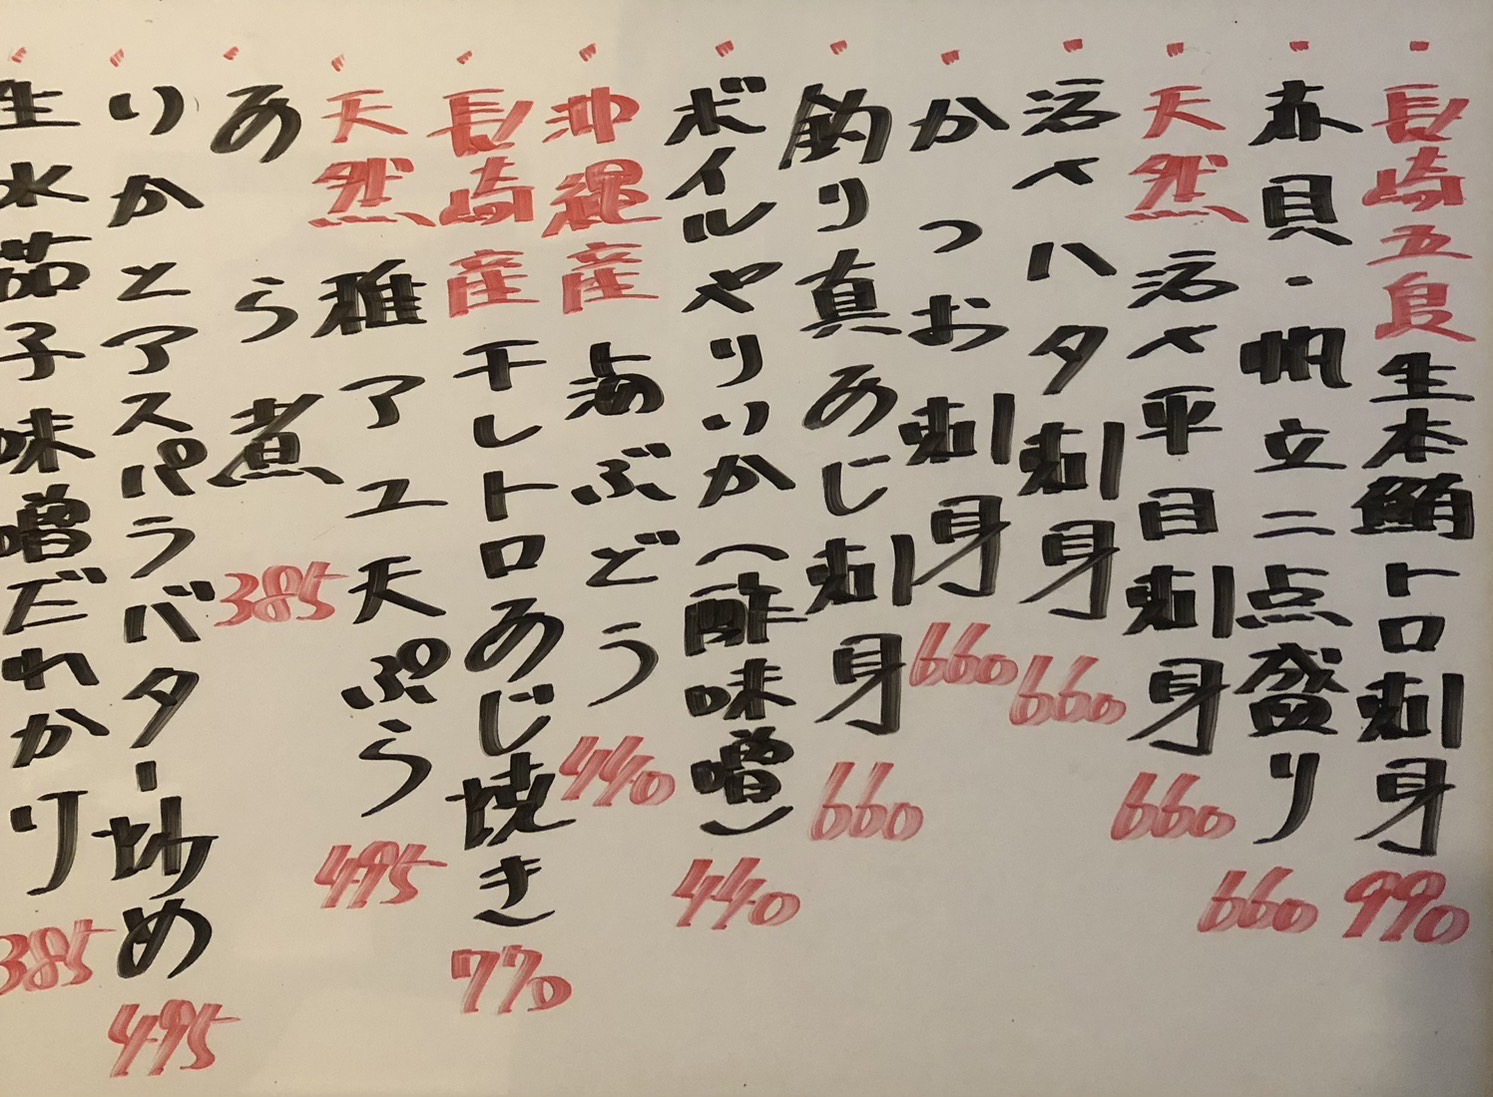 長崎五島生本鮪トロ刺身 990
赤貝・帆立二点盛り 660
天然活〆平目刺身 660
活〆ハタ刺身 660
かつお刺身 660
釣り真あじ刺身 660
ボイルやりいか(酢味噌) 440
沖縄産海ぶどう 440
長崎産干しトロあじ焼き 770
天然稚アユ天ぷら 495
あら煮 385
いかとアスパラバター炒め 495
生水茄子味噌だれかり 385